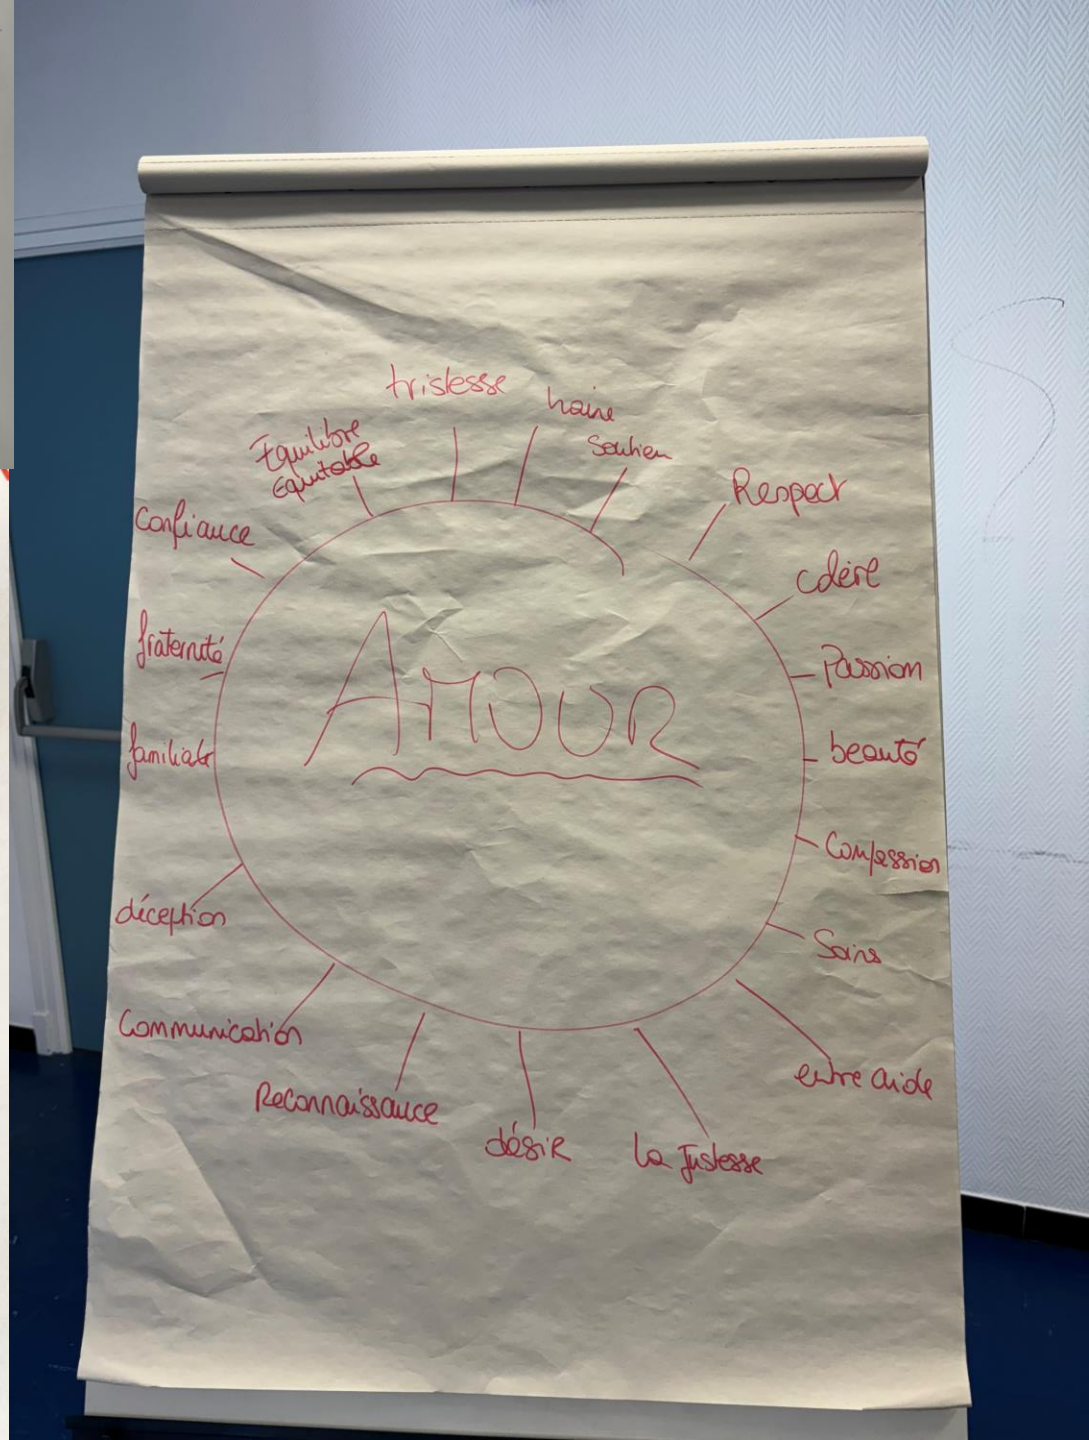 tristesse
haine
Soutien
Respect
colère
Passion
beauté
Compassion
Soins
entre aide
la Justesse
désir
Reconnaissance
Communication
déception
familiale
fraternité
Confiance
Equilibre
Equitable
AMOUR